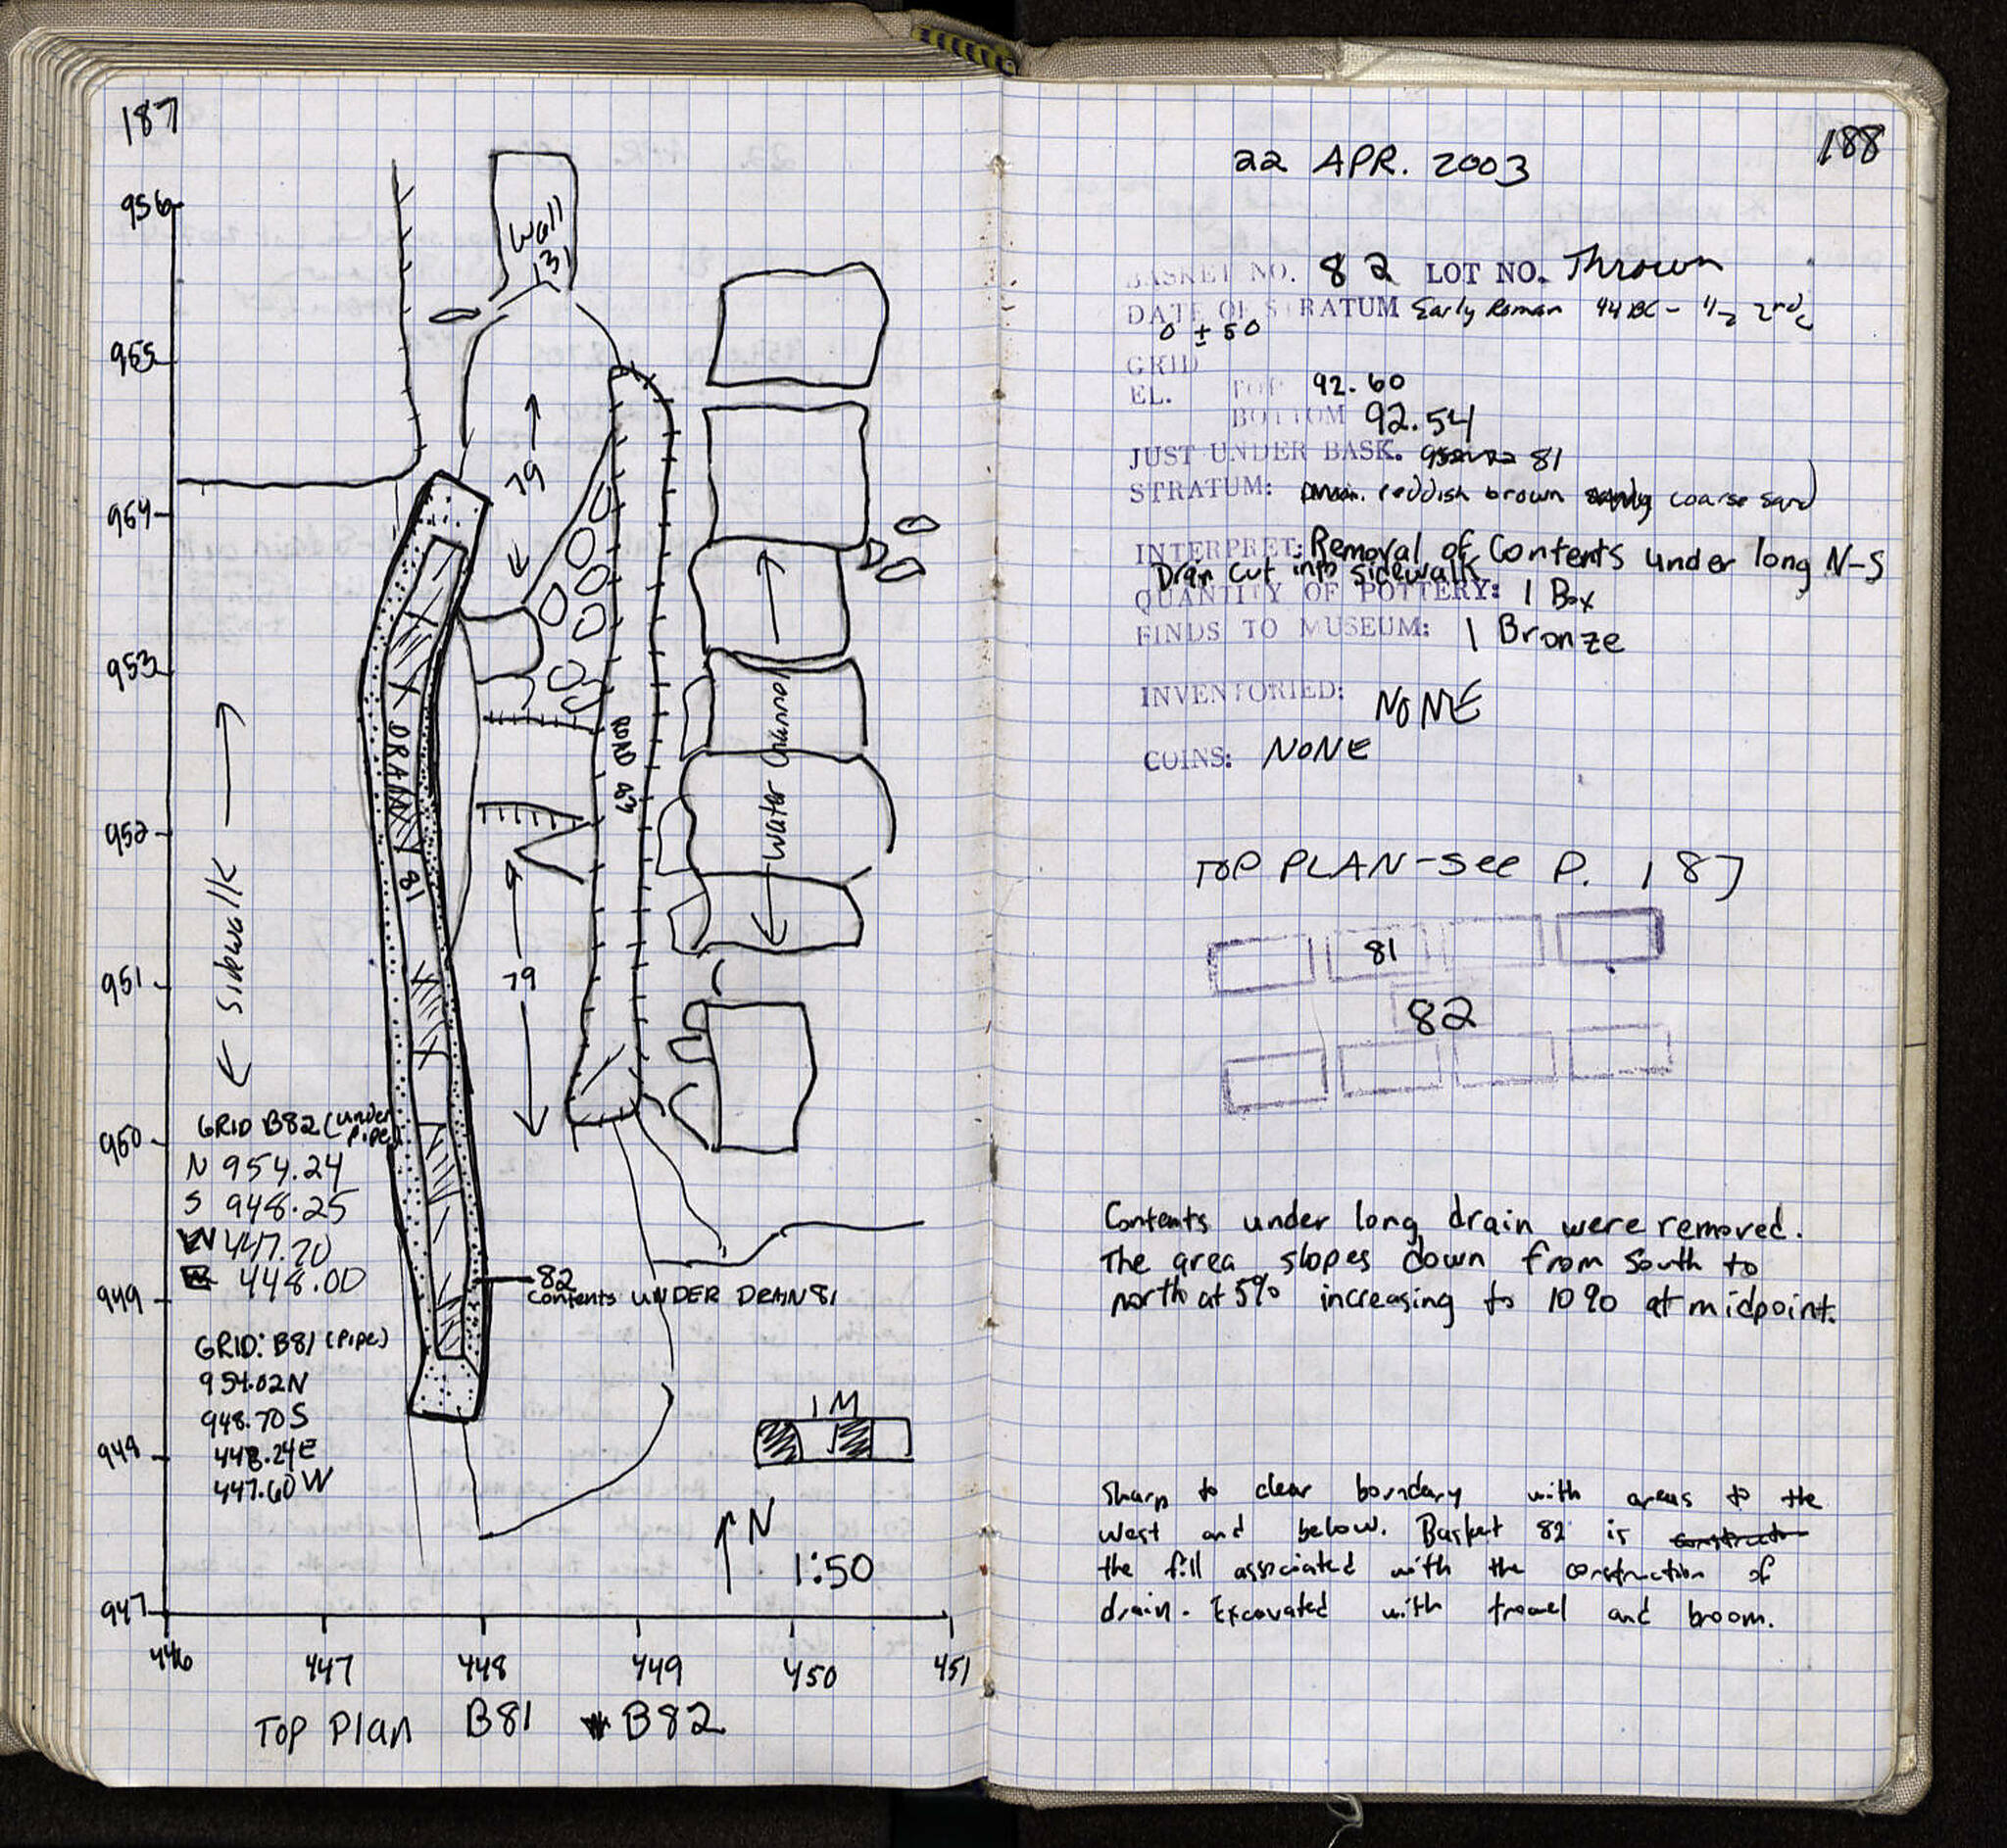 187
956
955
954
953
952
951
950
949
948
947
446
447
448
449
450
451
Wall
131
79
DRAIN 81
ROAD 83
Water Channel
Sidewalk
79
GRID B82 (under
pipe)
N 954.24
S 948.25
W 447.70
E 448.00
82
Contents UNDER DRAIN 81
GRID: B81 (Pipe)
954.02N
948.70S
448.24E
447.60W
1M
N
1:50
TOP Plan B81 B82
188
22 APR. 2003
BASKET NO. 82 LOT NO. Thrown
DATE OF STRATUM Early Roman 44 BC - 1/2 2nd c
0 ± 50
GRID
EL. TOP 92.60
BOTTOM 92.54
JUST UNDER BASK. 81
STRATUM: reddish brown coarse sand
INTERPRET: Removal of Contents under long N-S
Drain Cut into sidewalk
QUANTITY OF POTTERY: 1 Box
FINDS TO MUSEUM: 1 Bronze
INVENTORIED: NONE
COINS: NONE
TOP PLAN-See P. 187
81
82
Contents under long drain were removed.
The area slopes down from South to
north at 5% increasing to 10% at midpoint.
Sharp to clear boundary with areas to the
west and below. Basket 82 is
the fill associated with the construction of
drain. Excavated with trowel and broom.